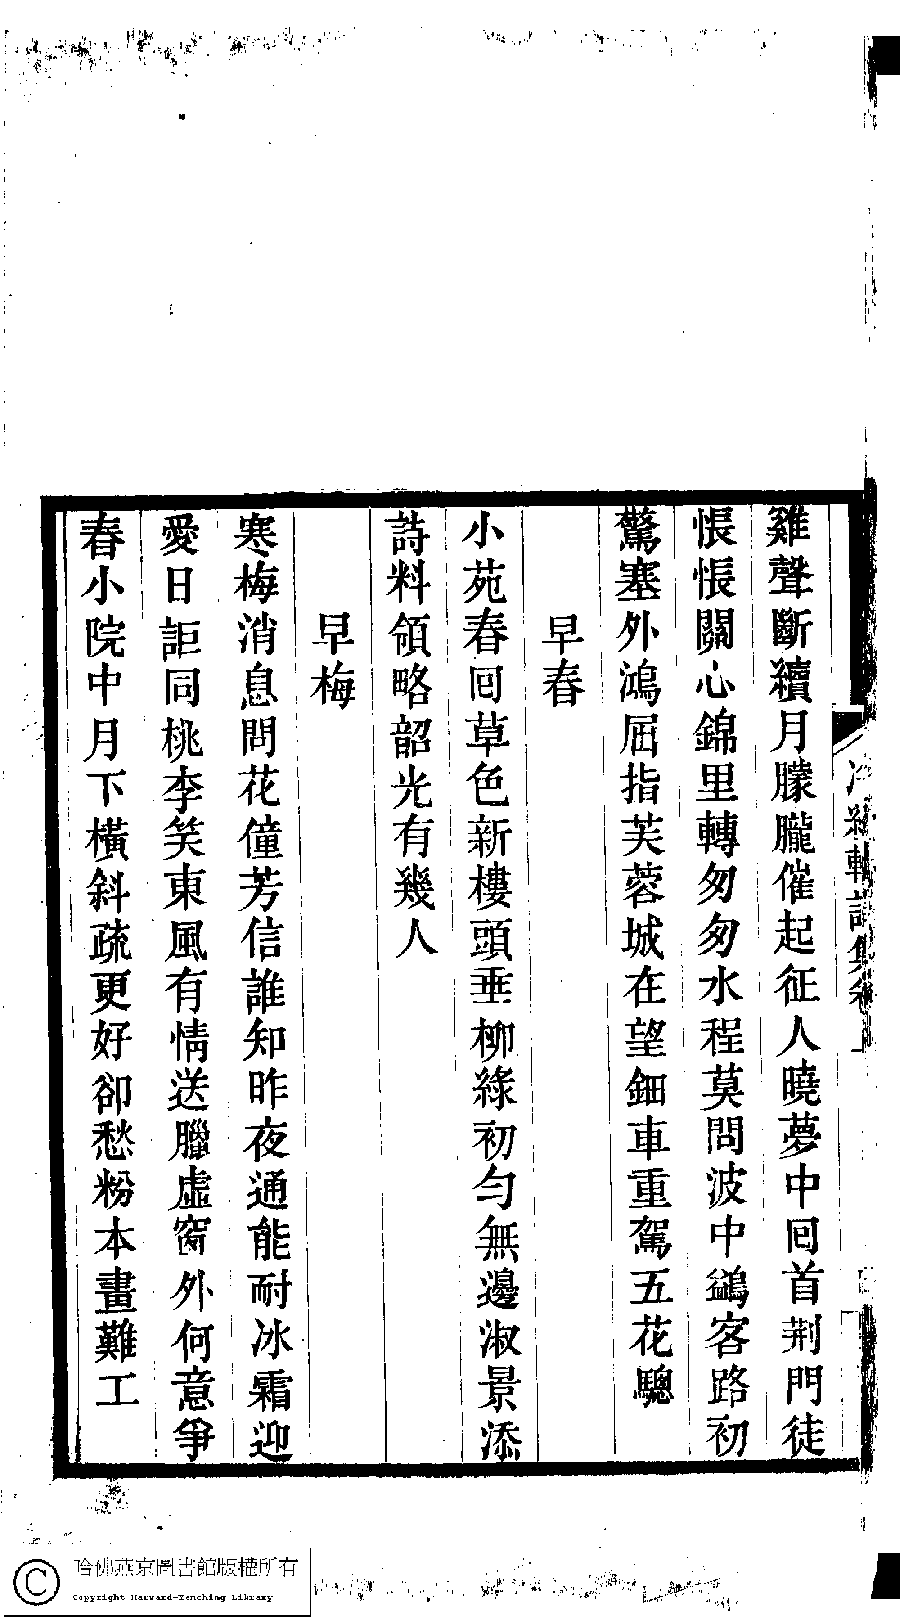 雞聲斷續月朦朧催起征人曉夢中囘首荆門徒
悵悵關心錦里轉匆匆水程莫問波中鷁客路初
驚塞外鴻屈指芙蓉城在望鈿車重駕五花驄
早春
小苑春囘草色新樓頭垂柳綠初勻無邊淑景添
詩料領略韶光有幾人
早梅
寒梅消息問花僮芳信誰知昨夜通能耐冰霜迎
愛日詎同桃李笑東風有情送臘虛窗外何意爭
春小院中月下橫斜疏更好卻愁粉本畫難工
哈佛燕京圖書館版權所有
Copyright Harvard-Yenching Library